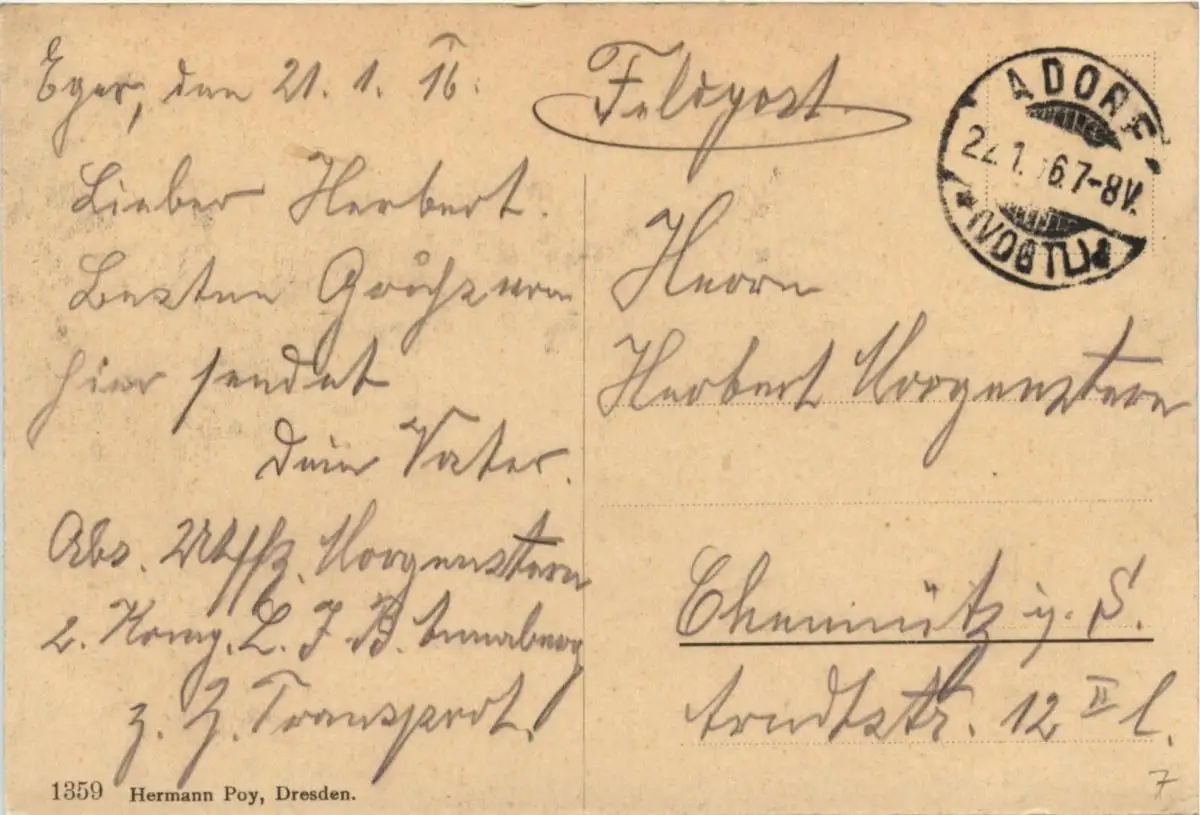 Eger, den 21. 1. 16.
Lieber Herbert.
Besten Gruß von
hier sendet
Dein Vater.
Abs. Utffz. Morgenstern
2. Komp. L. J. B. Annaberg
z. Z. Transport.
1359 Hermann Poy, Dresden.
Feldpost
ADORF
22.1.16.7-8V.
* (VOGTL.)
Herrn
Herbert Morgenstern
Chemnitz i. S.
Arndtstr. 12 II l.
7